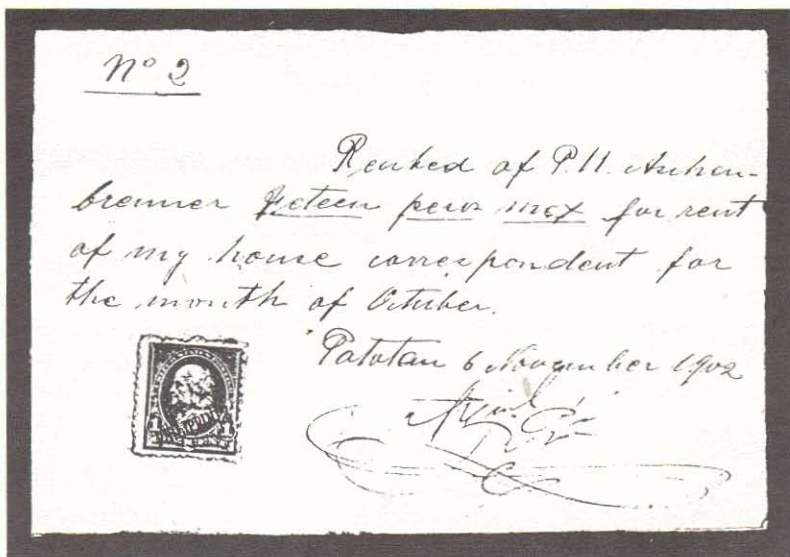 Nº 2
Rented of P. H. Auhen-
brenner fifteen pesos mex for rent
of my house correspondent for
the month of October.
Pototan 6 November 1902
1 PHILIPPINES 1